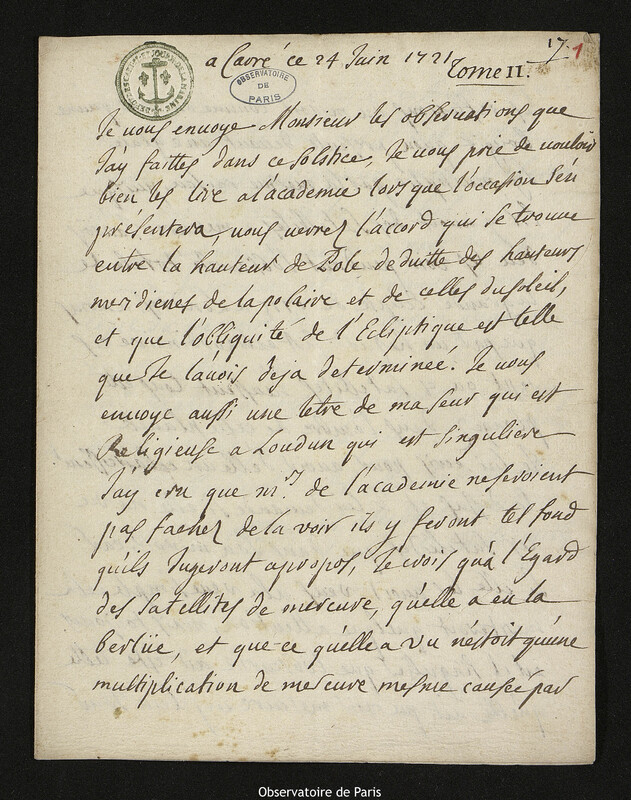 a Carré ce 24 Juin 1721
17. 1
Tome II.
OBSERVATOIRE
DE
PARIS
Je vous envoye Monsieur les observations que
J'ay faittes dans ce solstice, Je vous prie de vouloir
bien les lire a l'academie lorsque l'occasion s'en
présentera, vous verrez l'accord qui se trouve
entre la hauteur de Pole deduitte des hauteurs
meridienes de la polaire et de celles du soleil,
et que l'obliquité de l'Ecliptique est telle
que Je l'avois deja determineé. Je vous
envoye aussi une letre de ma seur qui est
Religieuse a Loudun qui est singuliere
J'ay cru que mrs de l'academie ne seroient
pas fachez de la voir ils y feront tel fond
qu'ils Jugeront apropos, Je crois qu'a l'Egard
des satellites de mercure, qu'elle a eu la
berlüe, et que ce qu'elle a vu n'estoit qu'une
multiplication de mercure mesme causée par
Observatoire de Paris